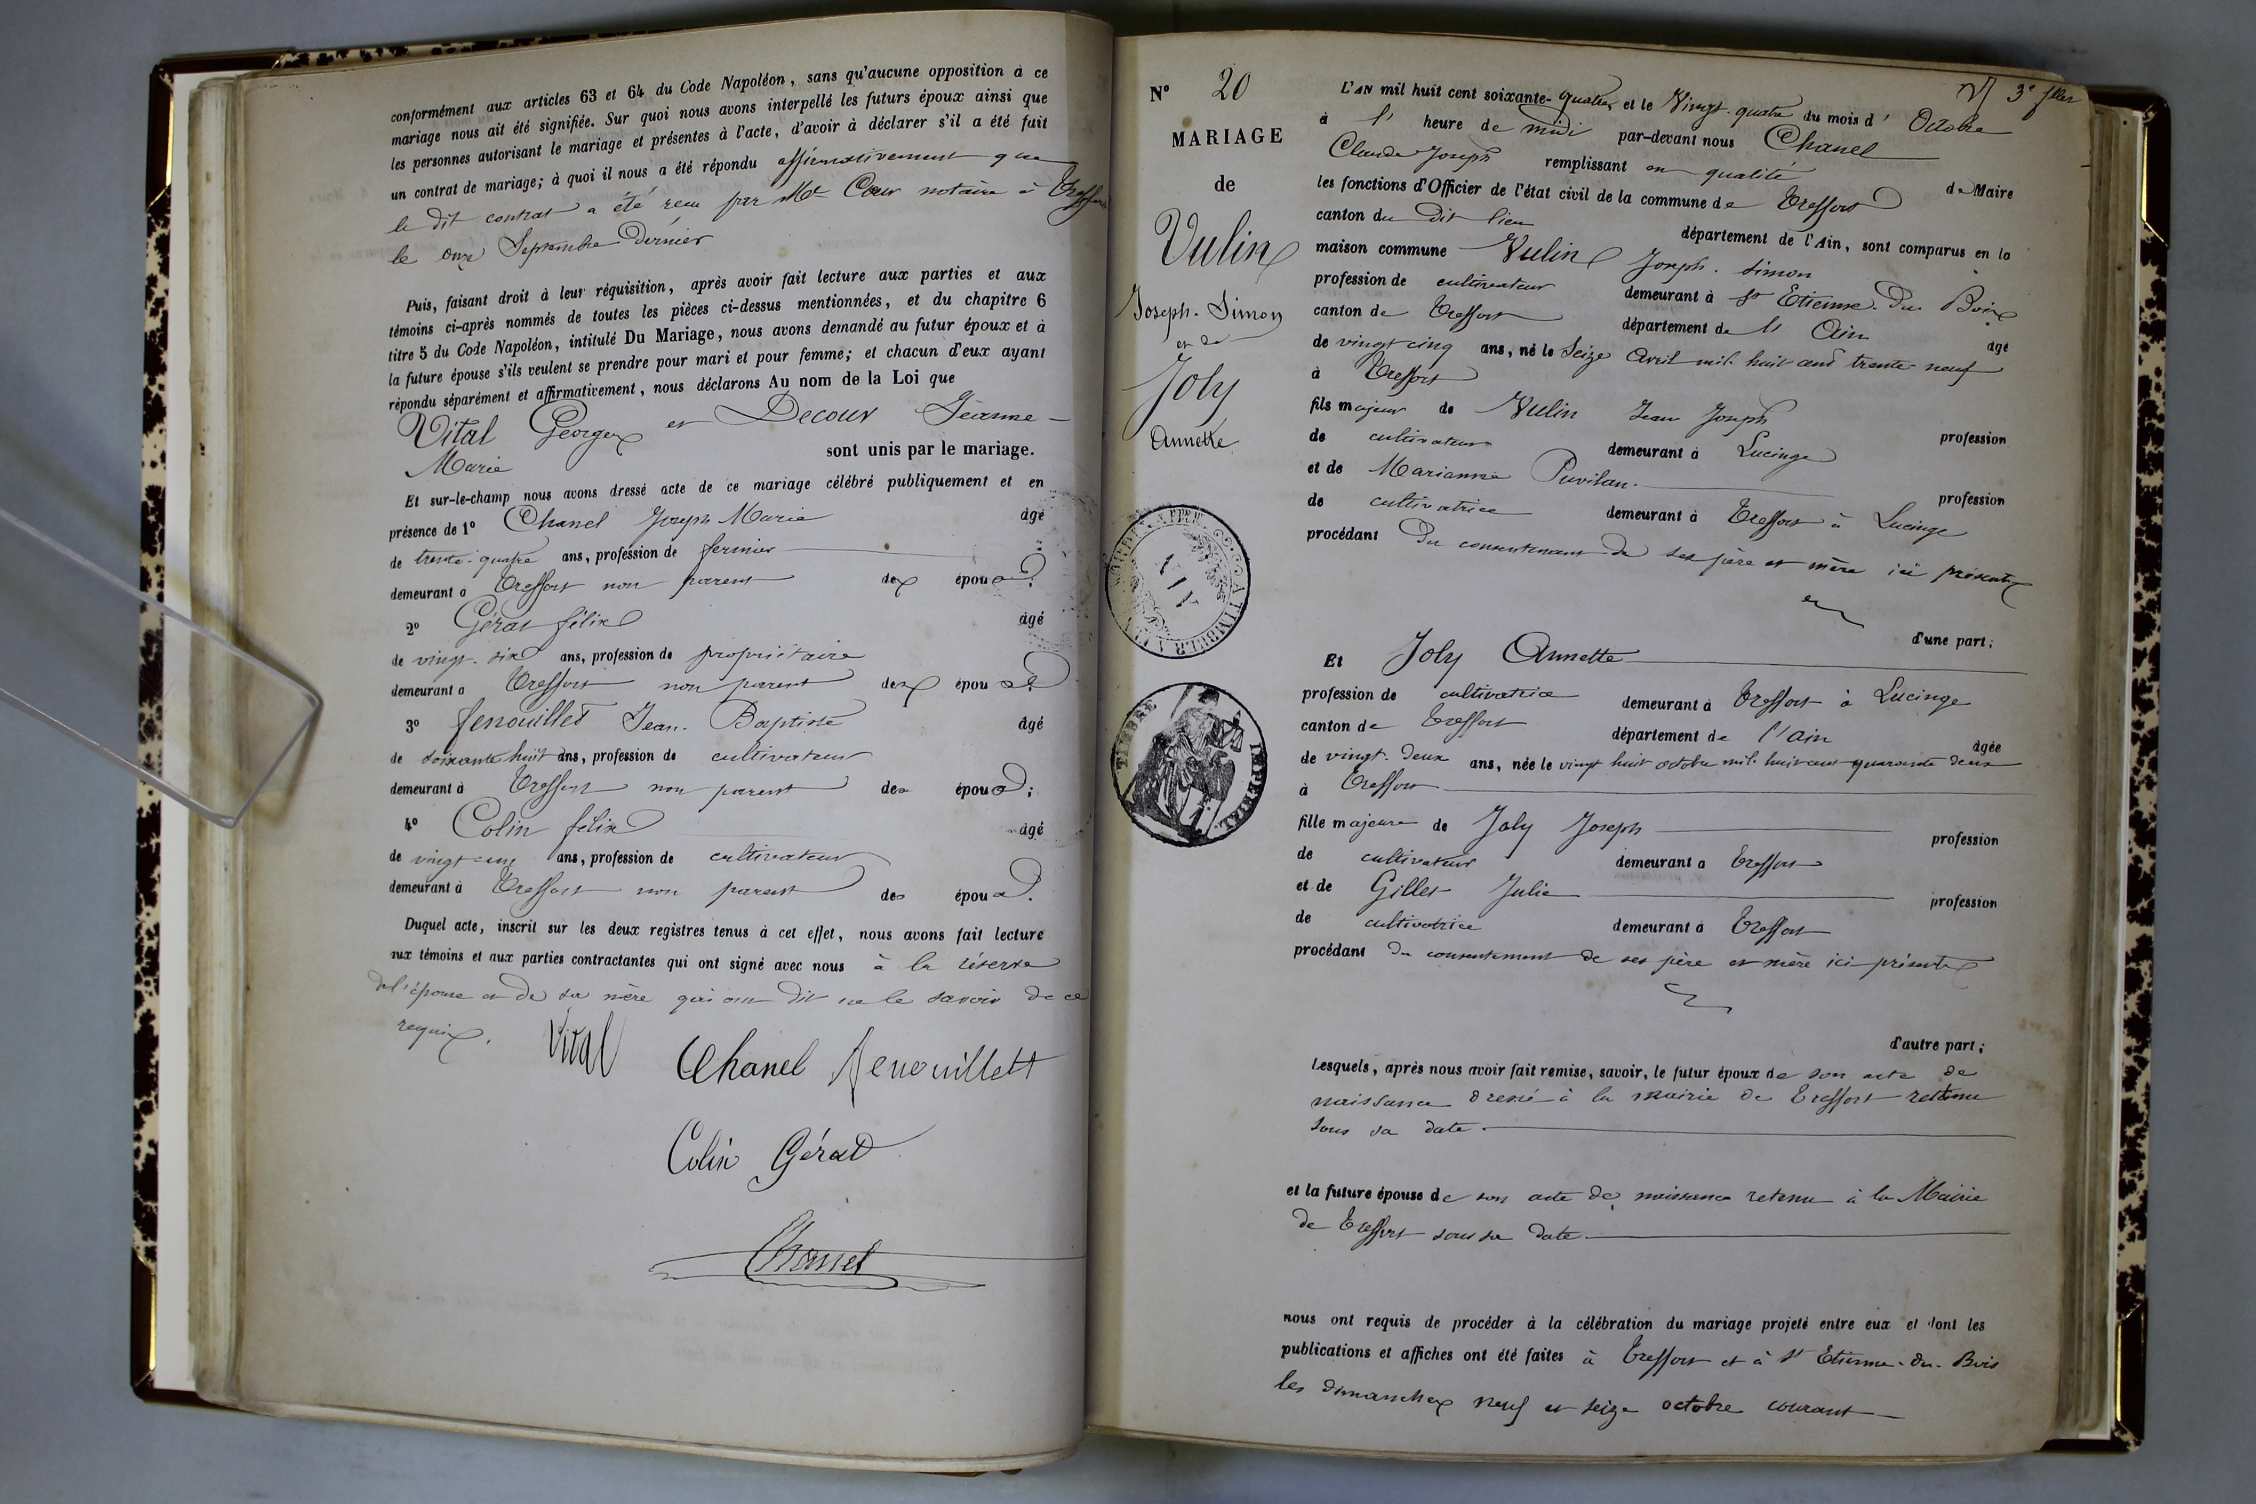 conformément aux articles 63 et 64 du Code Napoléon, sans qu'aucune opposition à ce
mariage nous ait été signifiée. Sur quoi nous avons interpellé les futurs époux ainsi que
les personnes autorisant le mariage et présentes à l'acte, d'avoir à déclarer s'il a été fait
un contrat de mariage; à quoi il nous a été répondu affirmativement que
le dit contrat a été recu par Me Cour notaire à Treffort
le onze Septembre Dernier
Puis, faisant droit à leur réquisition, après avoir fait lecture aux parties et aux
témoins ci-après nommés de toutes les pièces ci-dessus mentionnées, et du chapitre 6
titre 5 du Code Napoléon, intitulé Du Mariage, nous avons demandé au futur époux et à
la future épouse s'ils veulent se prendre pour mari et pour femme; et chacun d'eux ayant
répondu séparément et affirmativement, nous déclarons Au nom de la Loi que
Vital Georges et Decour Jéanne
Marie sont unis par le mariage.
Et sur-le-champ nous avons dressé acte de ce mariage célébré publiquement et en
présence de 1° Chanel Joseph Marie âgé
de trente-quatre ans, profession de fermier
demeurant à Treffort non parent des époux;
2° Gérat félix âgé
de vingt-six ans, profession de propriétaire
demeurant à Treffort non parent des époux;
3° fenouillet Jean-Baptiste âgé
de soixante huit ans, profession de cultivateur
demeurant à Treffort non parent des époux;
4° Colin félix âgé
de vingt cinq ans, profession de cultivateur
demeurant à Treffort non parent des époux.
Duquel acte, inscrit sur les deux registres tenus à cet effet, nous avons fait lecture
aux témoins et aux parties contractantes qui ont signé avec nous à la réserve
de l'épouse et de sa mère qui ont dit ne le savoir de ce
requis.
Vital Chanel fenouillett
Colin Gérat
Chanel
N° 20
MARIAGE
de
Vulin
Joseph-Simon
et de
Joly
Annette
TIMBRE IMPERIAL
3e flles
L'AN mil huit cent soixante-quatre et le Vingt-quatre du mois d'Octobre
à l'heure de midi par-devant nous Chanel
Claude Joseph remplissant en qualité de Maire
les fonctions d'Officier de l'état civil de la commune de Treffort
canton du dit lieu département de l'Ain, sont comparus en la
maison commune Vulin Joseph-Simon
profession de cultivateur demeurant à St Etienne-Du-Bois
canton de Treffort département de l'Ain âgé
de vingt cinq ans, né le Seize Avril mil-huit cent trente-neuf
à Treffort
fils majeur de Vulin Jean Joseph profession
de cultivateur demeurant à Lucinge
et de Marianne Puvilan profession
de cultivatrice demeurant à Treffort à Lucinge
procédant Du consentement de ses père et mère ici présents
d'une part;
Et Joly Annette
profession de cultivatrice demeurant à Treffort à Lucinge
canton de Treffort département de l'ain âgée
de vingt-deux ans, née le vingt huit octobre mil-huit cent quarante deux
à Treffort
fille majeure de Joly Joseph profession
de cultivateur demeurant à Treffort
et de Gillet Julie profession
de cultivatrice demeurant à Treffort
procédant du consentement de ses père et mère ici présents
d'autre part;
Lesquels, après nous avoir fait remise, savoir, le futur époux de son acte de
naissance dressé à la mairie de Treffort retenu
sous sa date.
et la future épouse de son acte de naissance retenu à la Mairie
de Treffort sous sa date
nous ont requis de procéder à la célébration du mariage projeté entre eux et dont les
publications et affiches ont été faites à Treffort et à St Etienne-du-Bois
les dimanches neuf et seize octobre courant